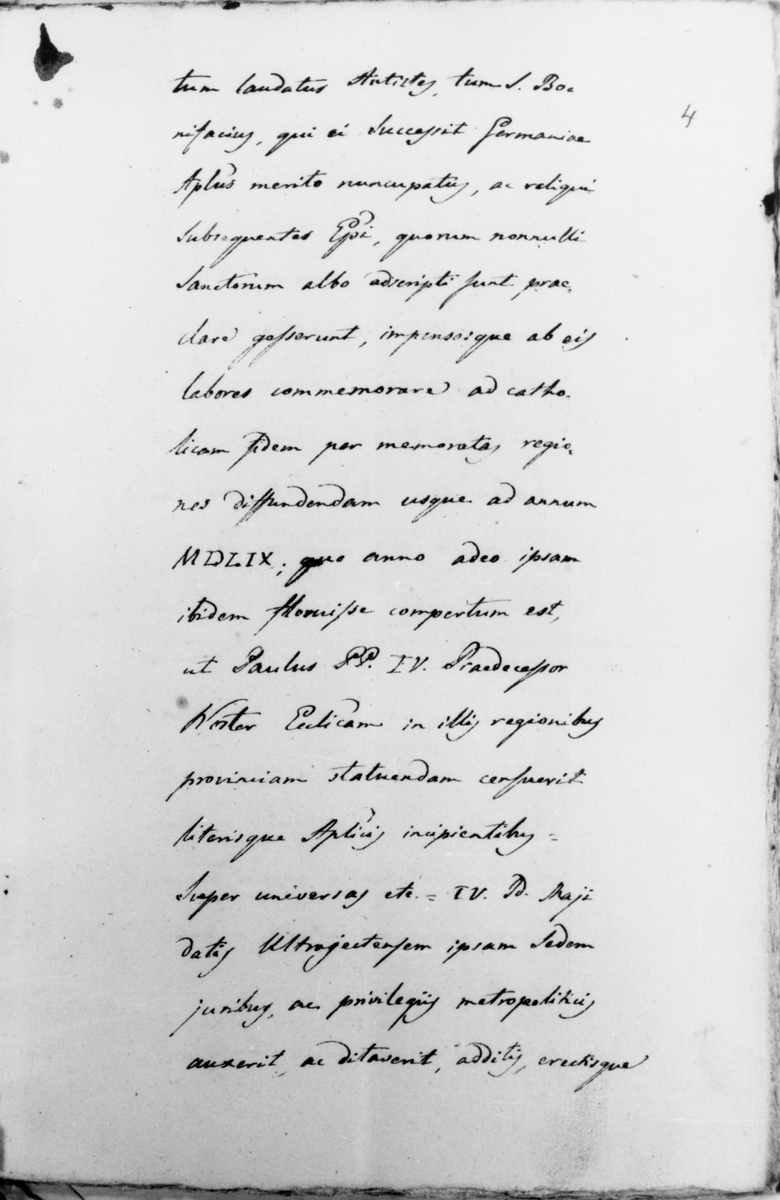 tum laudatus Antistes, tum S. Bo=
4
nifacius, qui ei successit Germaniae
Aplus merito nuncupatus, ac reliqui
subsequentes Epi, quorum nonnulli
Sanctorum albo adscripti sunt prae=
clare gesserunt, impensosque ab eis
labores commemorare ad catho=
licam fidem per memoratas regio=
nes diffundendam usque ad annum
MDLIX; quo anno adeo ipsam
ibidem floruisse compertum est,
ut Paulus PP. IV. Praedecessor
Noster Ecclicam in illis regionibus
provinciam statuendam censuerit
literisque Aplicis incipientibus =
Super universas etc. = IV. Id. Maji
datis Ultrajectensem ipsam Sedem
juribus, ac privilegiis metropoliticis
auxerit, ac ditaverit, additis, erectisque